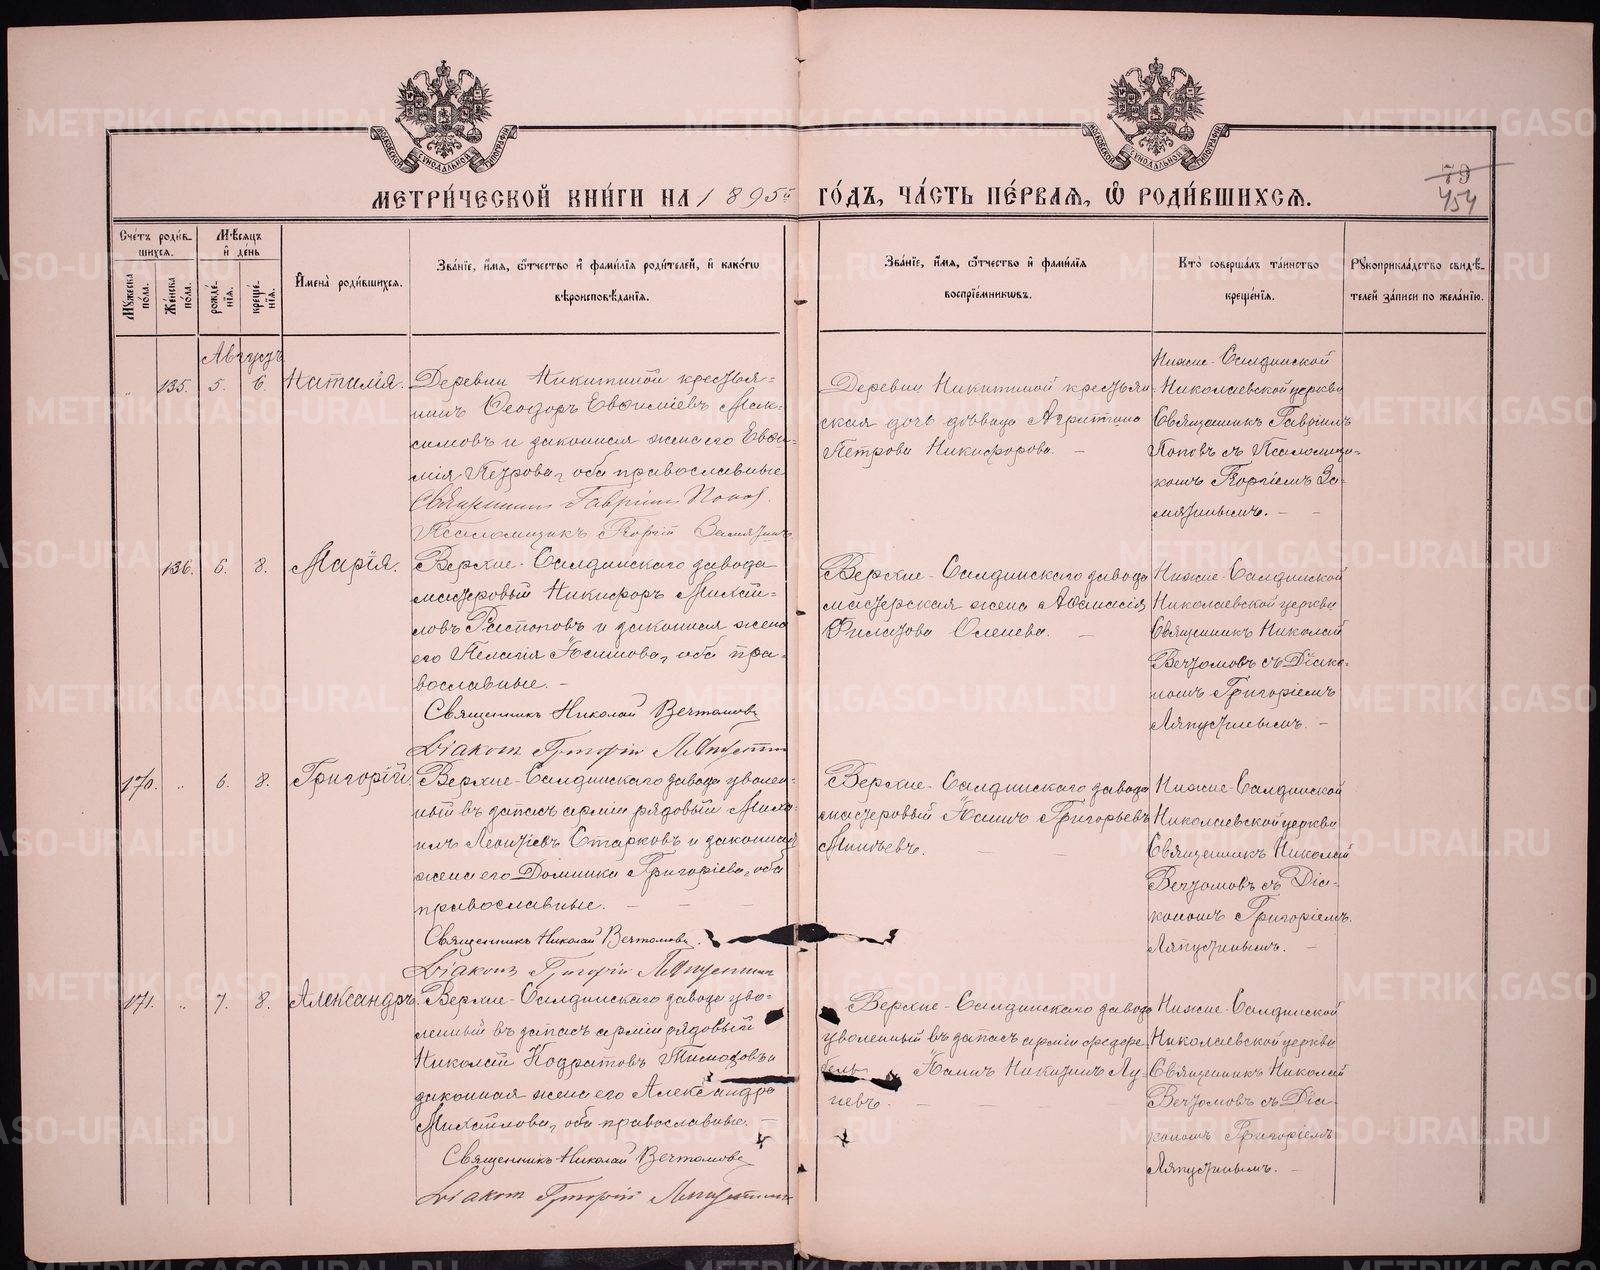 МОСКОВСКОЙ СѴНОДАЛЬНОЙ ТИПОГРАФІИ
МОСКОВСКОЙ СѴНОДАЛЬНОЙ ТИПОГРАФІИ
МЕТРИ́ЧЕСКОЙ КНИ́ГИ НА 1895й ГО́ДЪ, ЧА́СТЬ ПЕ́РВАЯ, Ѡ РОДИ́ВШИХСЯ.
79
454
Сче́тъ роди́в-
шихся.
Мѣсяцъ
и де́нь
Мꙋжеска
по́ла.
Же́нска
по́ла.
рожде́-
нія.
креще́-
нія.
Имена̀ роди́вшихся.
Зва́ніе, и́мя, ѻ́тчество и фами́лія роди́телей, и како́гѡ
вѣроисповѣ́данія.
Зва́ніе, и́мя, ѻ́тчество и фами́лія
воспріе́мникѡвъ.
Кто̀ соверша́лъ та́инство
креще́нія.
Рꙋкоприкла́дство свидѣ́-
телей за́писи по жела́нію.
Августъ
„ 135. 5. 6. Наталія.
Деревни Никитиной крестья-
нинъ Ѳеодоръ Евѳиміевъ Мак-
симовъ и законная жена его Евѳи-
мія Петрова, оба православные
Священникъ Гавріилъ Поповъ
Псаломщикъ Георгій Замятинъ
Деревни Никитиной крестьян-
ская дочь дѣвица Агрипина
Петрова Никифорова. —
Нижне-Салдинской
Николаевской церкви
Священникъ Гавріилъ
Поповъ съ Псаломщи-
комъ Георгіемъ За-
мятинымъ. — —
136. 6. 8. Марія.
Верхне-Салдинскаго завода
мастеровый Никифоръ Михай-
ловъ Распоповъ и законная жена
его Пелагія Іоаннова, оба пра-
вославные. —
Священникъ Николай Вечтомовъ
Діаконъ Григорій Ляпустинъ
Верхне-Салдинскаго завода
мастерская жена Аѳанасія
Филатова Оленева. —
Нижне-Салдинской
Николаевской церкви
Священникъ Николай
Вечтомовъ съ Діако-
номъ Григоріемъ
Ляпустинымъ. —
170. „ 6. 8. Григорій.
Верхне-Салдинскаго завода уволен-
ный въ запасъ арміи рядовый Миха-
илъ Леонтіевъ Старковъ и законная
жена его Домника Григоріева, оба
православные. — — —
Священникъ Николай Вечтомовъ.
Діаконъ Григорій Ляпустинъ
Верхне-Салдинскаго завода
мастеровый Іоаннъ Григорьевъ
Миньевъ. — —
Нижне-Салдинской
Николаевской церкви
Священникъ Николай
Вечтомовъ съ Діа-
кономъ Григоріемъ
Ляпустинымъ. —
171. „ 7. 8. Александръ.
Верхне-Салдинскаго завода уво-
ленный въ запасъ арміи рядовый
Николай Кодратовъ и
законная жена его Александра
Михайлова, оба православные. —
Священникъ Николай Вечтомовъ
Діаконъ Григорій Ляпустинъ
Верхне-Салдинскаго завода
уволенный въ запасъ арміи фельдфе-
бель Іоаннъ Никитинъ Лу-
невъ. — —
Нижне-Салдинской
Николаевской церкви
Священникъ Николай
Вечтомовъ съ Діа-
кономъ Григоріемъ
Ляпустинымъ. —
METRIKI.GASO-URAL.RU